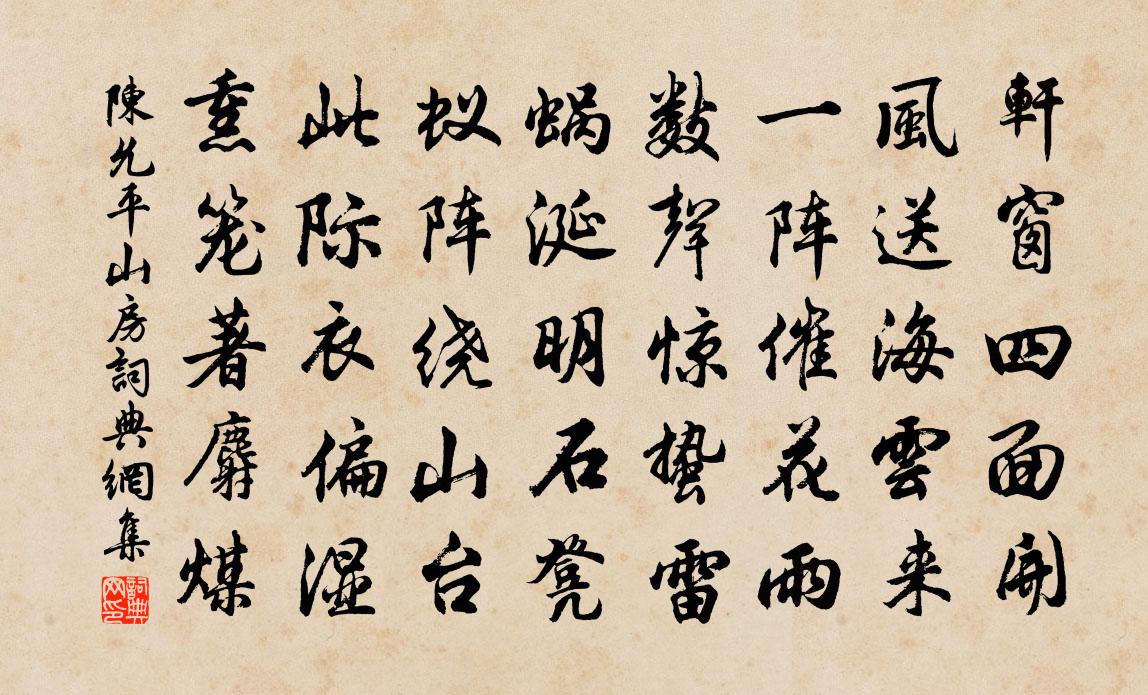 軒窗四面開
風送海雲来
一阵催花雨
数聲惊蛰雷
蜗涎明石凳
蚁阵绕山台
此际衣偏湿
熏笼著麝煤
陳允平山房詞典網集
詞典网印